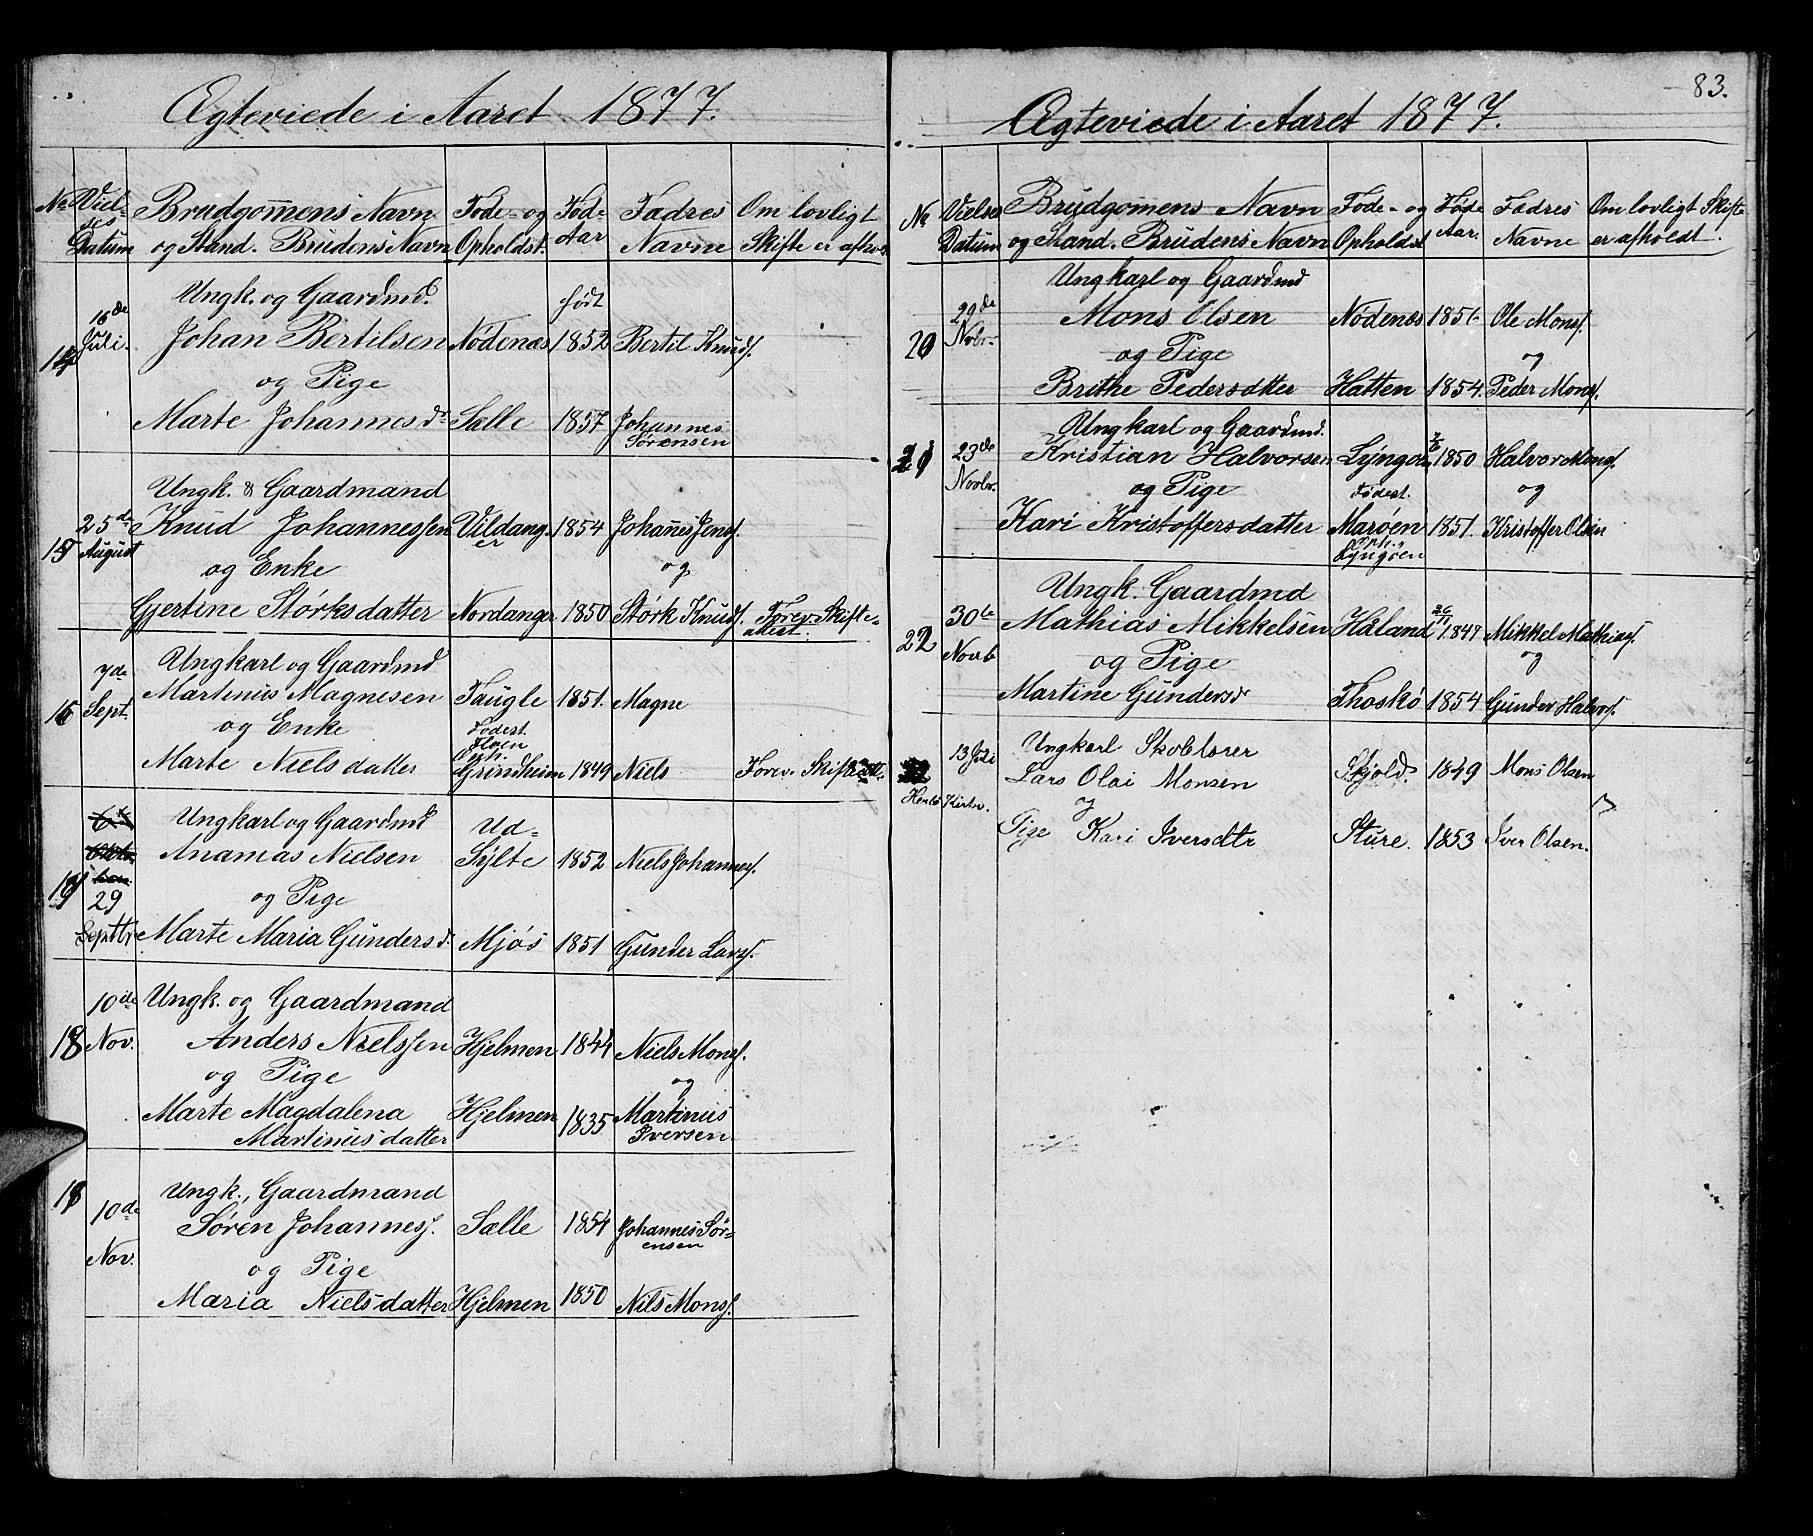 Ægteviede i Aaret 1877.
No Viel-ses Datum
Brudgomens Navn og Stand. Brudens Navn
Føde- og Opholdst.
Fød-Aar
Fædres Navne
Om lovligt Skifte er afho
16de Juli.
Ungk. og Gaardmd.
født
14 Johan Bertilsen Nødenæs 1852 Bertil Knuds.
og Pige
Marte Johannesd. Sælle 1857 Johannes Sørensen
Ungk. & Gaardmand
25de Knud Johannessen Vildanger 1854 Johanes Jens.
15 August og Enke og
Gjertine Størksdatter Nordanger 1850 Størk Knuds. Forev. Skifte-attest.
7de Ungkarl og Gaardmd
16 Sept. Martinus Magnesen Taugle 1851. Magne
og Enke Fødest. Floen
Marte Nielsdatter Oph. Grindheim 1849 Niels Forev. Skifteatt.
6te Ungkarl og Gaardmd Ud-
Oktr. Anamas Nielsen Sylte 1852 Niels Johannes.
29 og Pige
Septbr Marte Maria Gundersd. Mjøs 1851 Gunder Lars.
10de Ungk. og Gaardmand
18 Nov. Anders Nielssen Hjelmen 1844 Niels Mons.
og Pige og
Marte Magdalena Hjelmen 1835 Martinus
Martinusdatter Iversen
Ungk., Gaardmand
10de Søren Johannes. Sælle 1854 Johannes Sør-ensen
Nov. og Pige
Maria Nielsdatter Hjelmen 1850 Nils Mons.
83.
Ægteviede i Aaret 1877.
No Vielses Datum
Brudgomens Navn og Stand. Brudens Navn
Føde- og Opholdst
Føde Aar.
Fædres Navne
Om lovligt Skifte er afholdt.
Ungkarl og Gaardmd
29de Mons Olsen Nødenæs 1856 Ole Mons.
20 Novbr. og Pige og
Brithe Pedersdatter Hatten 1854. Peder Mons.
Ungkarl og Gaardmd.
21 23de Kristian Halvorsen Lyngøen 1850 Halvor Mons.
Novbr. og Pige Fødest. og
Kari Kristoffersdatter Marøen 1851. Kristoffer Olsen
Oph. Lyngøen
Ungk. Gaardmd
30te Mathias Mikkelsen Håland 26/11 1847 Mikkel Mathias.
22 Novb og Pige og
Martine Gundersd Thoskø 1854 Gunder Halvs.
13 Juli Ungkarl
Lars Olai Monsen Skjold. 1849 Mons Olsen
Herlø Kirke. og
Pige Kari Iversdtr Sture. 1853 Iver Olsen.